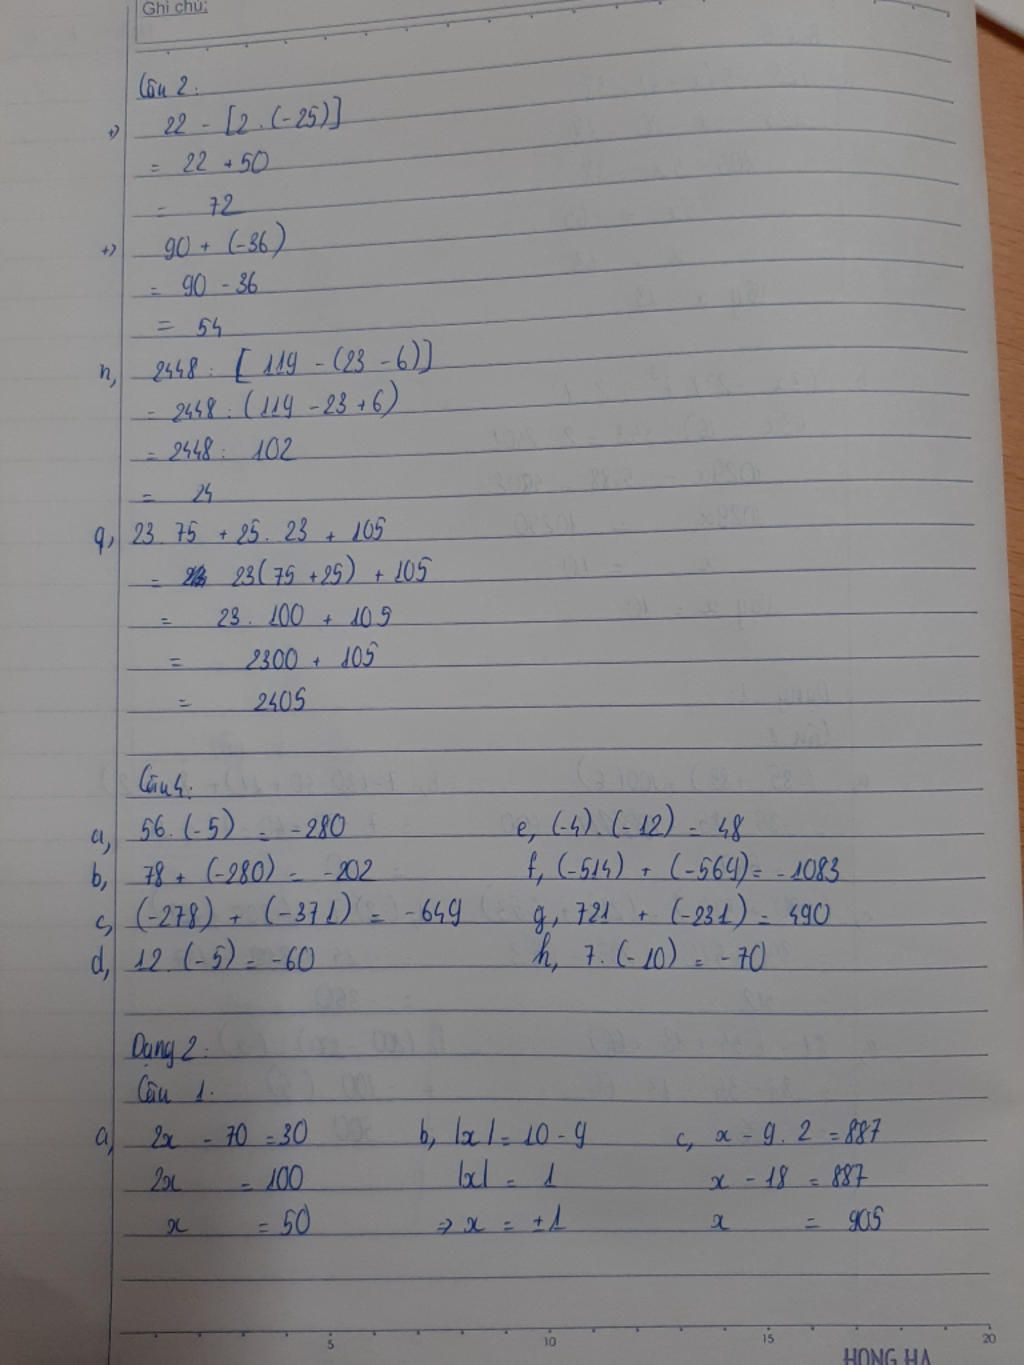 Ghi chú:
Câu 2:
+) 22 - [2.(-25)]
= 22 + 50
= 72
+) 90 + (-36)
= 90 - 36
= 54
n, 2448 : [119 - (23 - 6)]
= 2448 : (119 - 23 + 6)
= 2448 : 102
= 24
q, 23.75 + 25.23 + 105
= 23(75 + 25) + 105
= 23.100 + 105
= 2300 + 105
= 2405
Câu 4:
a, 56.(-5) = -280 e, (-4).(-12) = 48
b, 78 + (-280) = -202 f, (-514) + (-569) = -1083
c, (-278) + (-371) = -649 g, 721 + (-231) = 490
d, 12.(-5) = -60 h, 7.(-10) = -70
Dạng 2:
Câu 1:
a, 2x - 70 = 30 b, |x| = 10 - 9 c, x - 9.2 = 887
2x = 100 |x| = 1 x - 18 = 887
x = 50 => x = ±1 x = 905
5 10 15 20
HONG HA